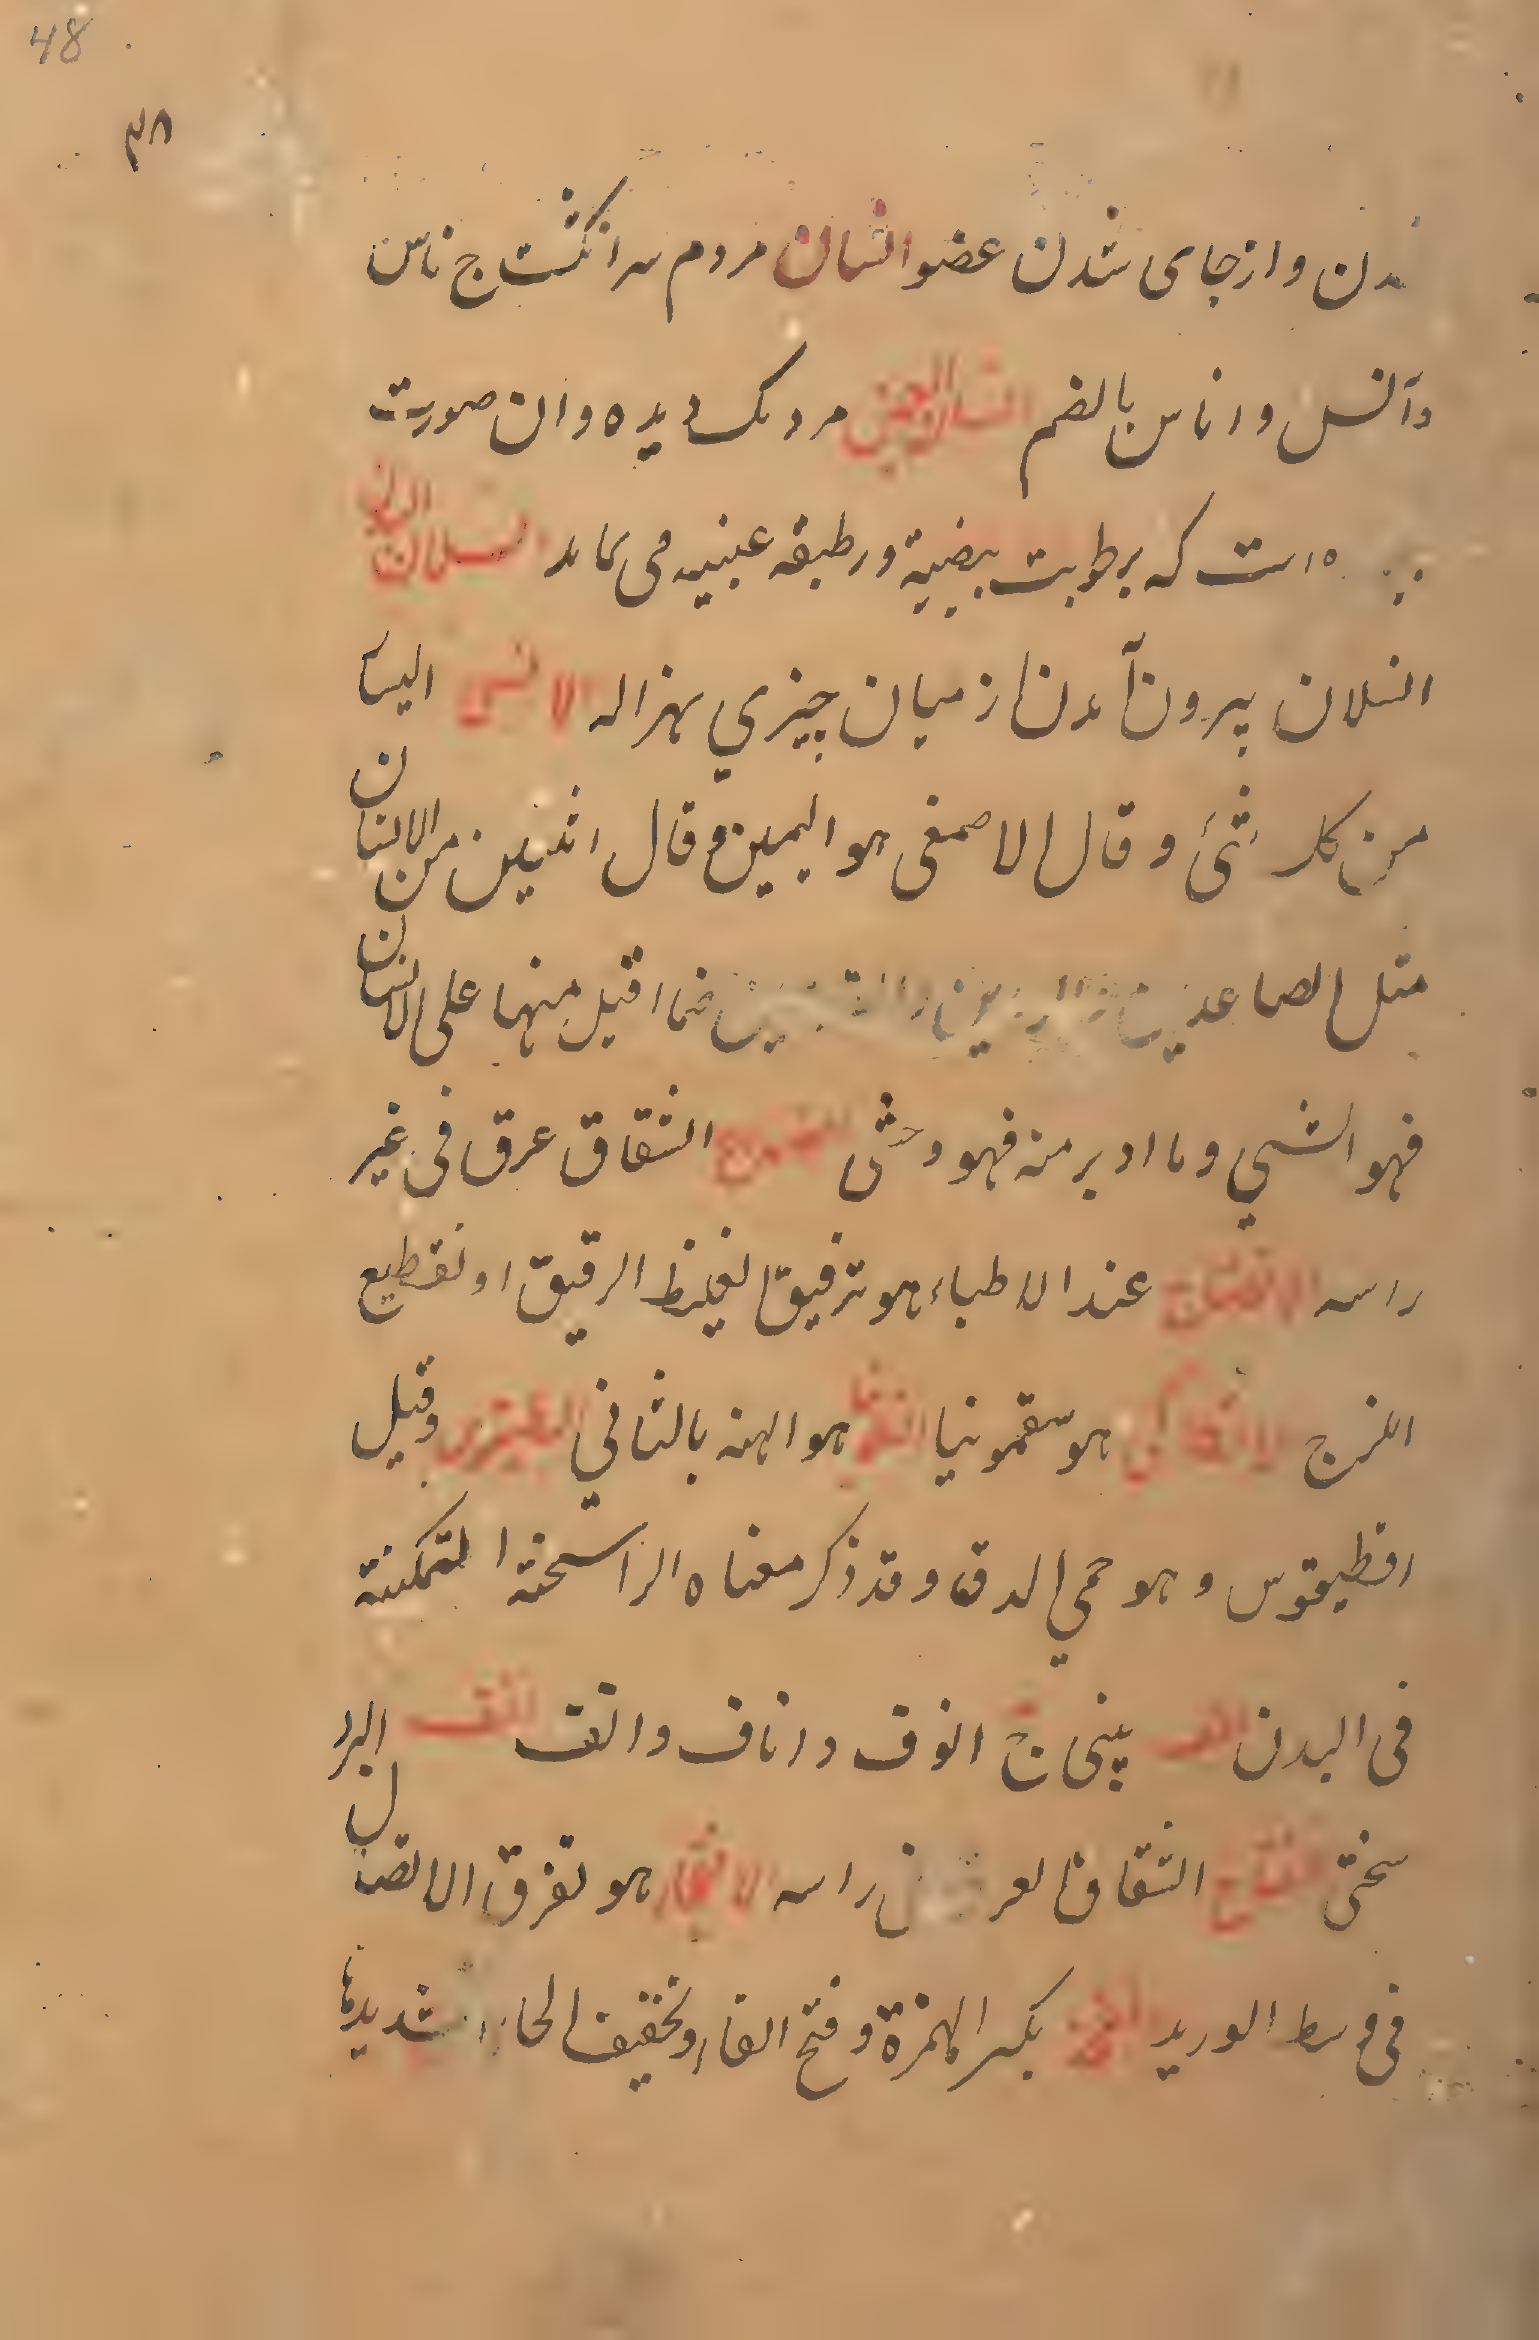 48
۴۸
دن و از جای شدن عضو انسان مردم سر انگشت ج ناس
وآنس و اناس بالضم انسان العین مردمک دیده و ان صورت
است که برطوبت بیضیة و رطبقه عنبیه می نماید انسلال
انسلان بیرون آمدن از میان چیزي بهزاله الانسی الیسا
من كل شئ و قال الاصمغی هو الیمین و قال اثنین من الانسان
مثل الصاعدین فما اقبل منها علی الانسان
فهو انسي و ما ادبر منه فهو وحشی انشقاق عرق فی غیر
راسه الانضاج عند الاطباء هو ترقیق لغلیظ الرقیق او تقطیع
اللزج الانطاکی هو سقمونیا هو الهنه بالثاني وقیل
اقطیقوس و هو حمي الدق وقد ذکر معناه الراسخة المتمکنة
فی البدن انف بینی ج انوف و اناف و انف انف البرد
سختی انفتاح انشقاق لعرق من راسه الانفجار هو تفرق الاتصال
فی وسط الورید انفحه بکسر الهمزة و فتح الفاء و تخفیف الحاء شدیدها